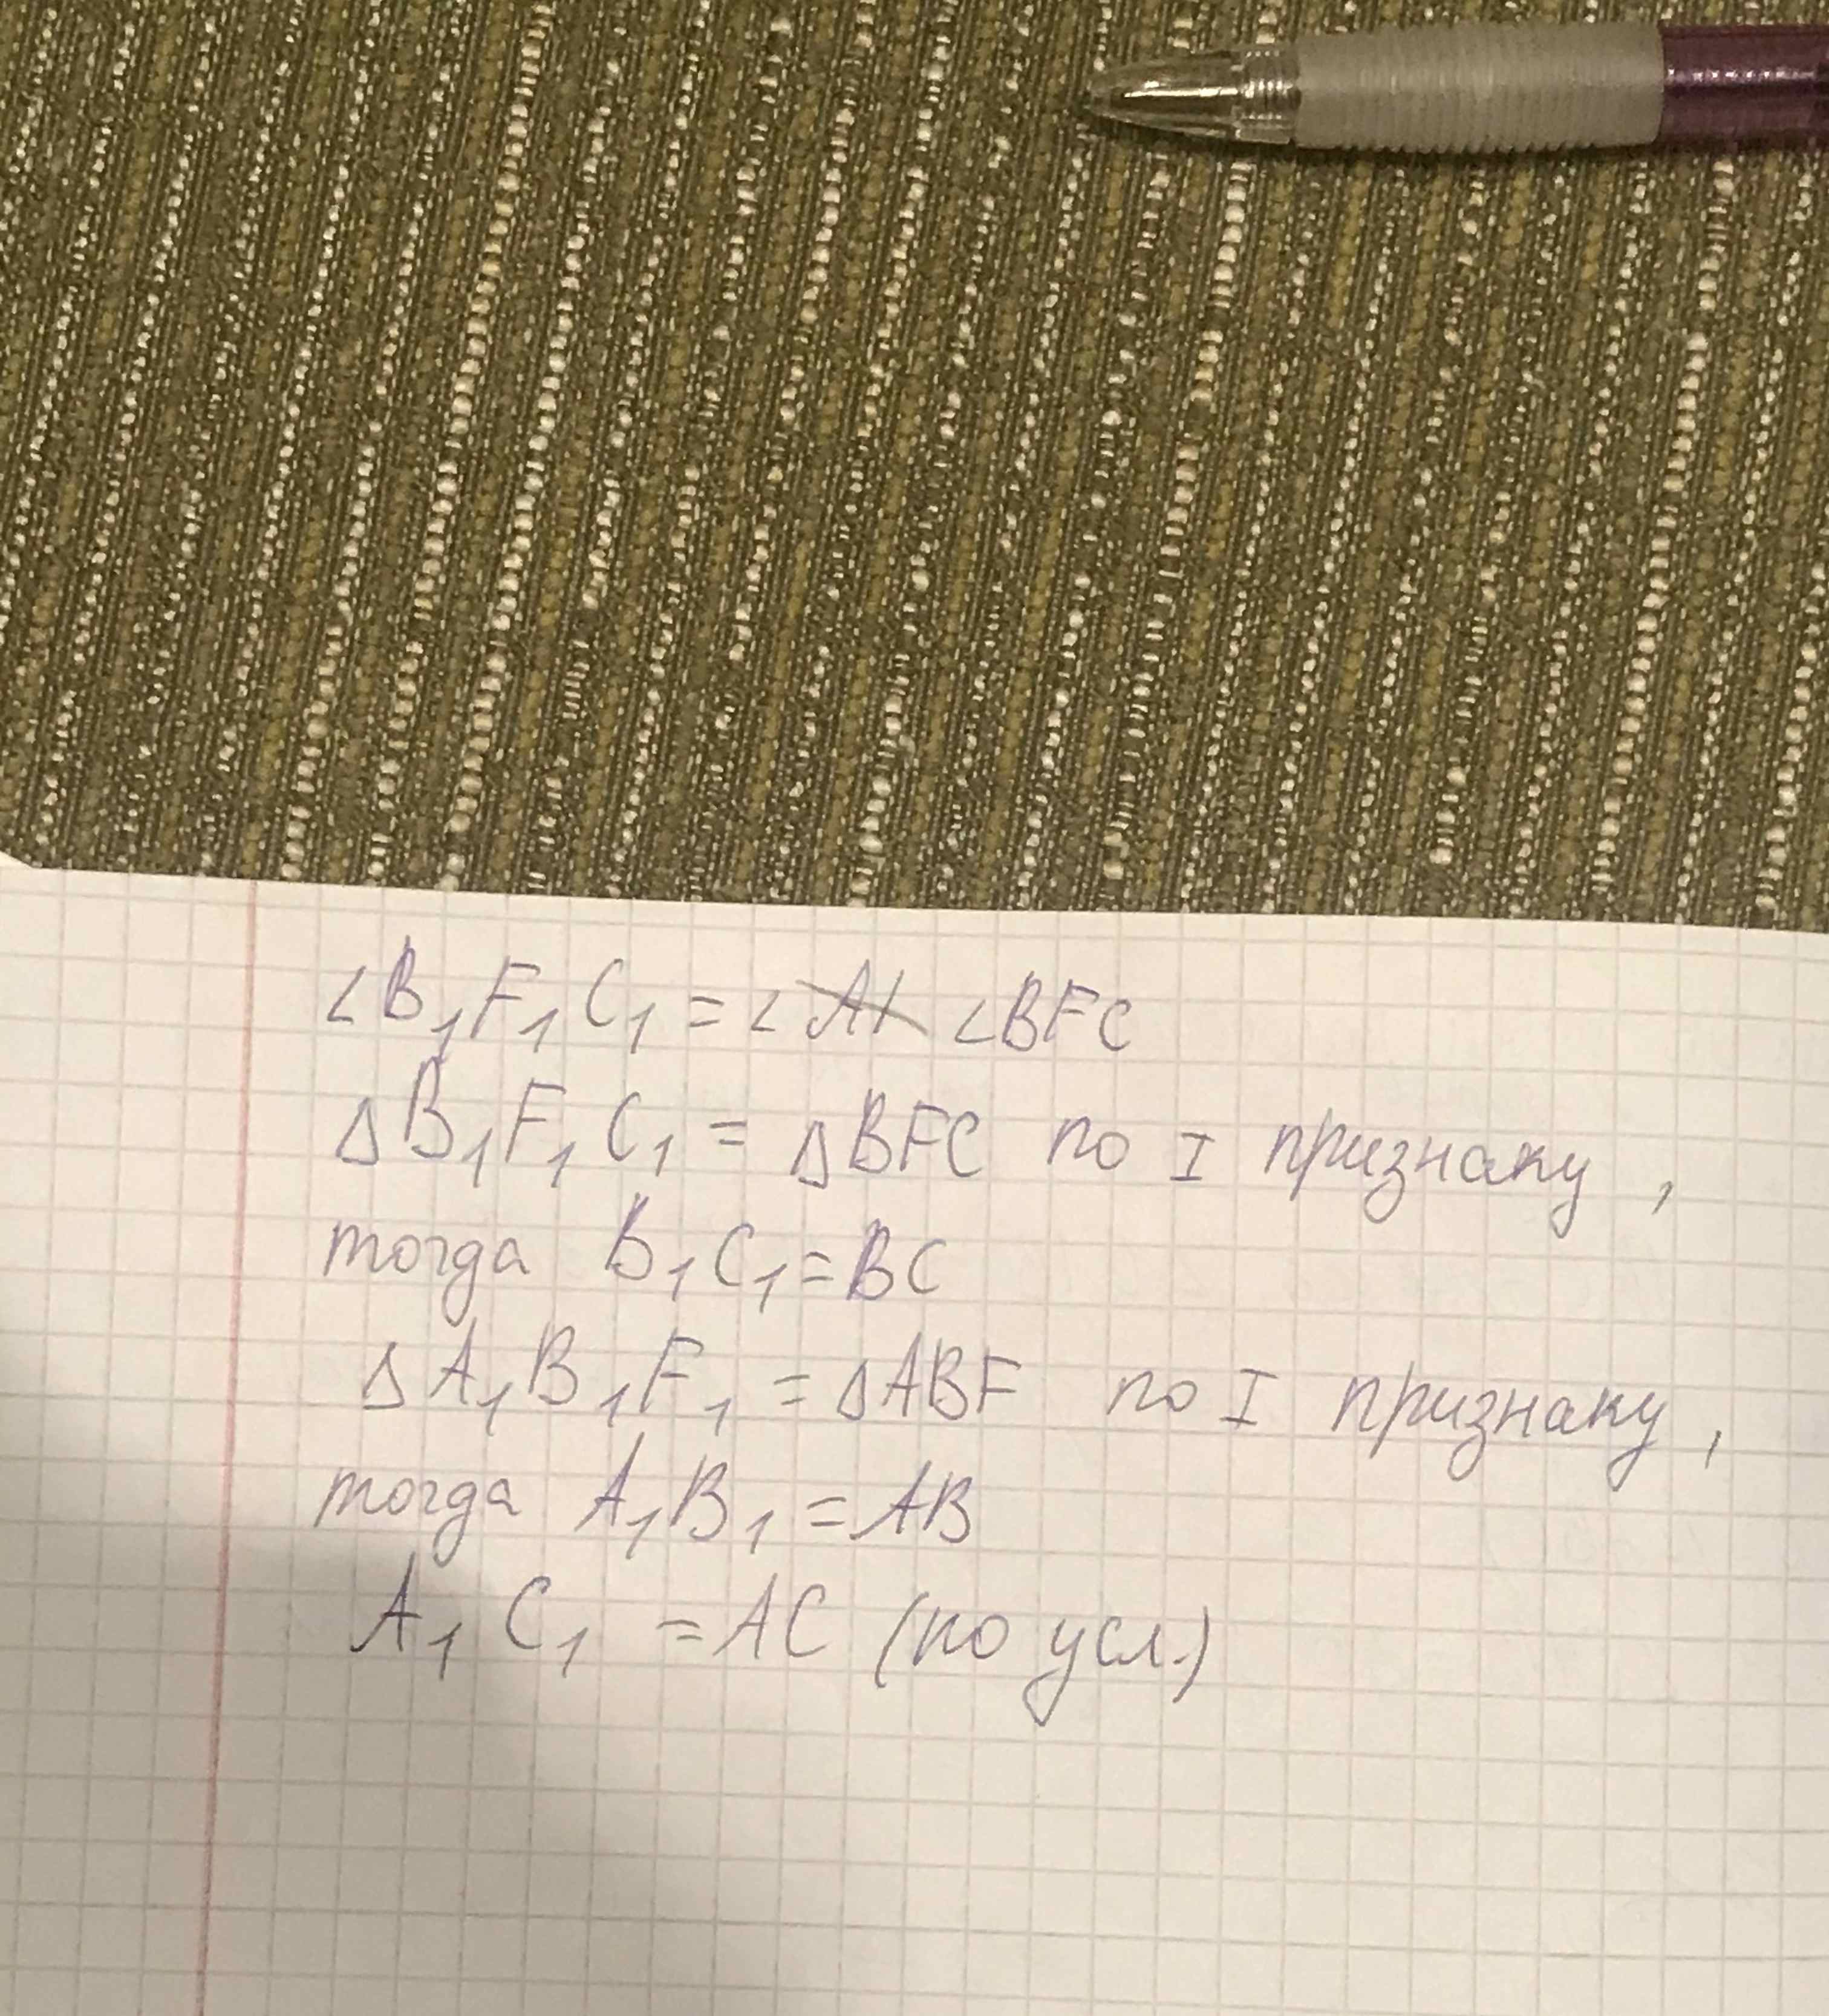 ∠B₁F₁C₁ = ∠ A ∠BFC
ΔB₁F₁C₁ = ΔBFC по I признаку,
тогда B₁C₁=BC
ΔA₁B₁F₁ = ΔABF по I признаку,
тогда A₁B₁ = AB
A₁C₁ = AC (по усл.)